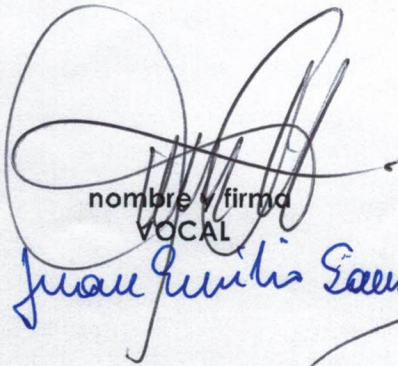 nombre y firma
VOCAL
Juan Emilio